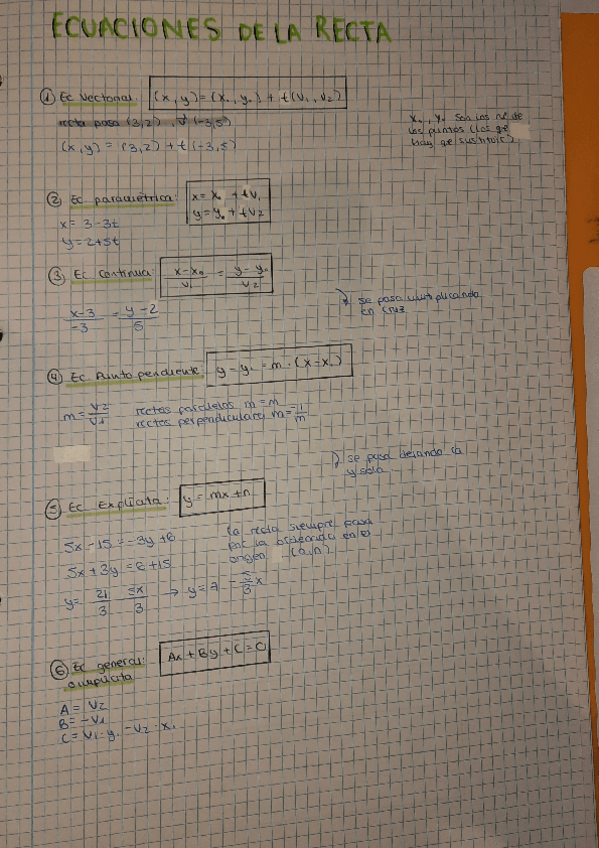 ECUACIONES DE LA RECTA
① Ec Vectorial: (x, y) = (x₀, y₀) + t(v₁, v₂)
recta pasa (3,2), v⃗ (-3,5)
(x, y) = (3,2) + t(-3,5)
x₀, y₀ son los nº de
los puntos (los qe
hay qe sustituir).
② Ec paramétrica: x = x₀ + tv₁
y = y₀ + tv₂
x = 3 - 3t
y = 2 + 5t
③ Ec Continua: (x - x₀)/v₁ = (y - y₀)/v₂
(x - 3)/-3 = (y - 2)/5
se pasa multiplicando
en cruz
④ Ec Punto pendiente: y - y₀ = m · (x - x₀)
m = v₂/v₁ rectas paralelas m = m
rectas perpendiculares m = -1/m
se pasa dejando la
y sola
⑤ Ec Explícita: y = mx + n
5x - 15 = -3y + 6
5x + 3y = 6 + 15
y = 21/3 - 5x/3 → y = 7 - 5/3 x
la recta siempre pasa
por la ordenada en el
origen (0, n)
⑥ Ec general: Ax + By + C = 0
o implícita
A = v₂
B = -v₁
C = v₁ · y₀ - v₂ · x₀